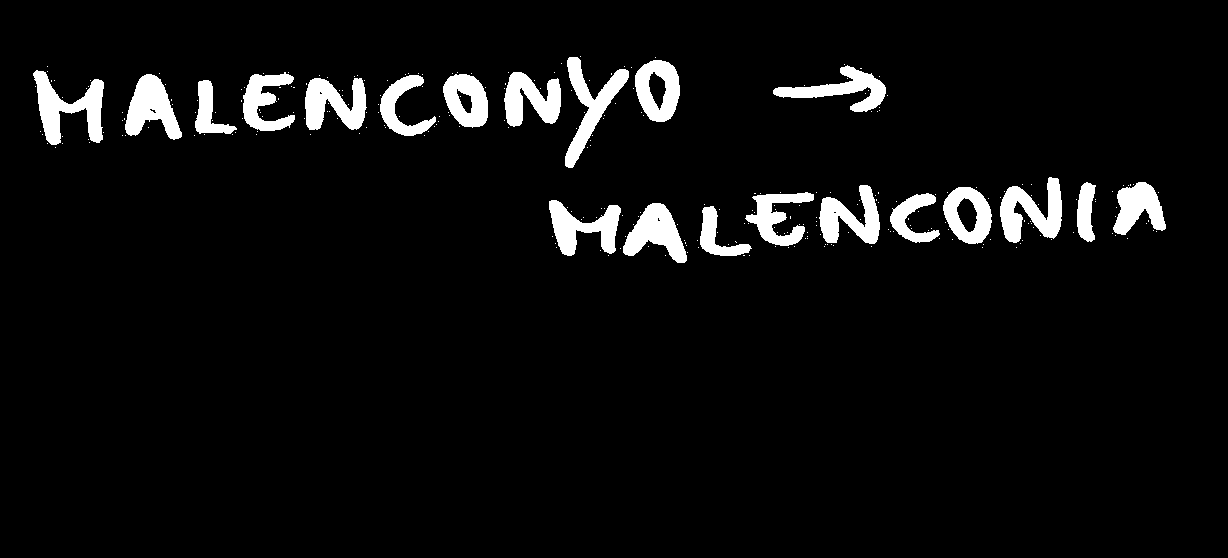 MALENCONYO →
MALENCONIA